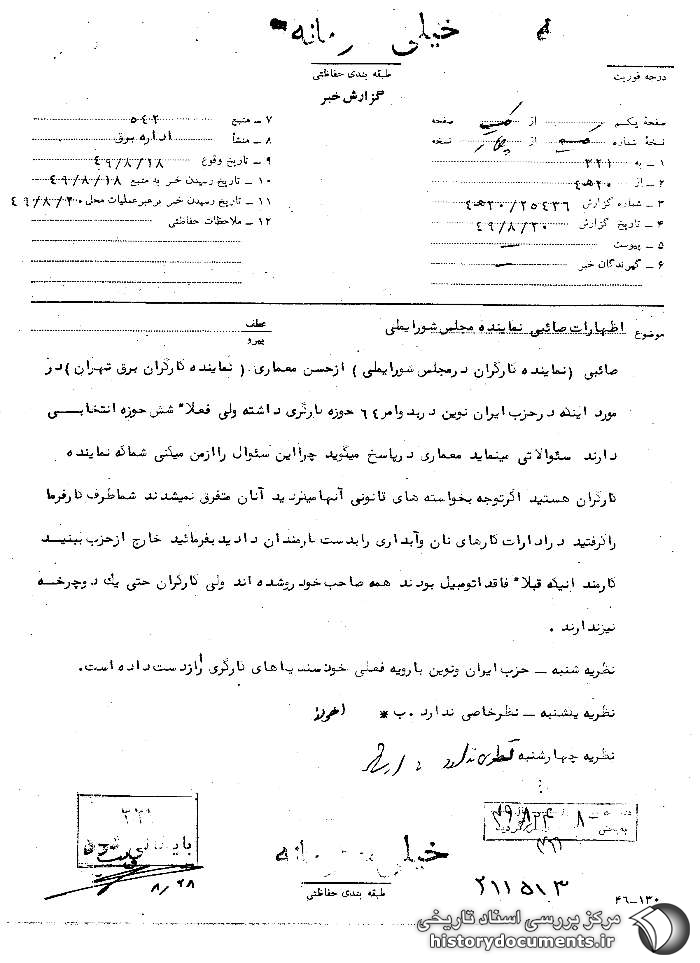 خیلی محرمانه
طبقه بندی حفاظتی
گزارش خبر
درجه فوریت
صفحه یکم از یک صفحه
نسخهٔ شماره از چهار نسخه
۱ ـ به ۳۲۱
۲ ـ از ۲۰ﻫ۴
۳ ـ شماره گزارش ۲۵۴۳۶/۲۰ﻫ۴
۴ ـ تاریخ گزارش ۴۹/۸/۲۰
۵ ـ پیوست ـ
۶ ـ گیرندگان خبر ـ
۷ ـ منبع ۵۴۲
۸ ـ منشأ اداره برق
۹ ـ تاریخ وقوع ۴۹/۸/۱۸
۱۰ ـ تاریخ رسیدن خبر به منبع ۴۹/۸/۱۸
۱۱ ـ تاریخ رسیدن خبر برهبر عملیات محل ۴۹/۸/۲۰
۱۲ ـ ملاحظات حفاظتی
موضوع اظهارات صائبی نماینده مجلس شورایملی
عطف
پیرو
صائبی (نماینده کارگران در مجلس شورایملی) از حسن معماری (نماینده کارگران برق تهران) در
مورد اینکه در حزب ایران نوین در بدو امر ۶۴ حوزه کارگری داشته ولی فعلاً شش حوزه انتخابی
دارند سئوالاتی مینماید معماری در پاسخ میگوید چرا این سئوال را از من میکنی شما که نماینده
کارگران هستید اگر توجه بخواسته های قانونی آنها میکردید آنان متفرق نمیشدند شما طرف کارفرما
را گرفتید در ادارات کارهای نان و آبداری را بدست کارمندان دادید بفرمائید خارج از حزب ببینید
کارمندانیکه قبلاً فاقد اتومبیل بودند همه صاحب خودرو شده اند ولی کارگران حتی یک دوچرخه
نیز ندارند .
نظریه شنبه ـ حزب ایران ونوین با رویه فعلی خود سندیکاهای کارگری را از دست داده است.
نظریه یکشنبه ـ نظر خاصی ندارد . ب *
نظریه چهارشنبه نظری ندارد
۳۲۱
بایگانی شود
۸/۲۸
خیلی محرمانه
طبقه بندی حفاظتی
۲۱۱۵۱۳
۴۶-۱۳۰
مرکز بررسی اسناد تاریخی
historydocuments.ir